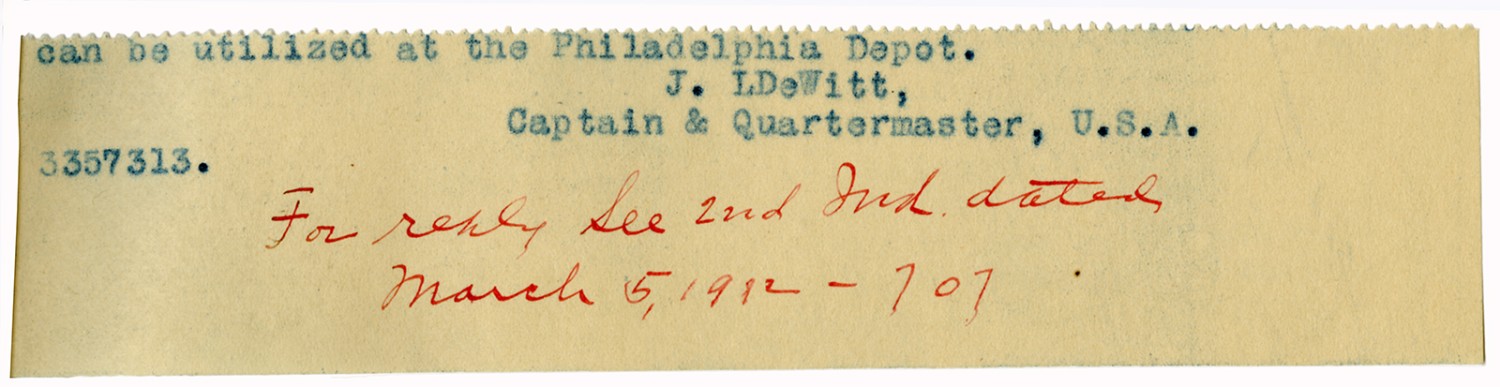 can be utilized at the Philadelphia Depot.
J. LDeWitt,
Captain & Quartermaster, U.S.A.
3357313.
For reply, See 2nd Ind. dated
March 5, 1912 - 707